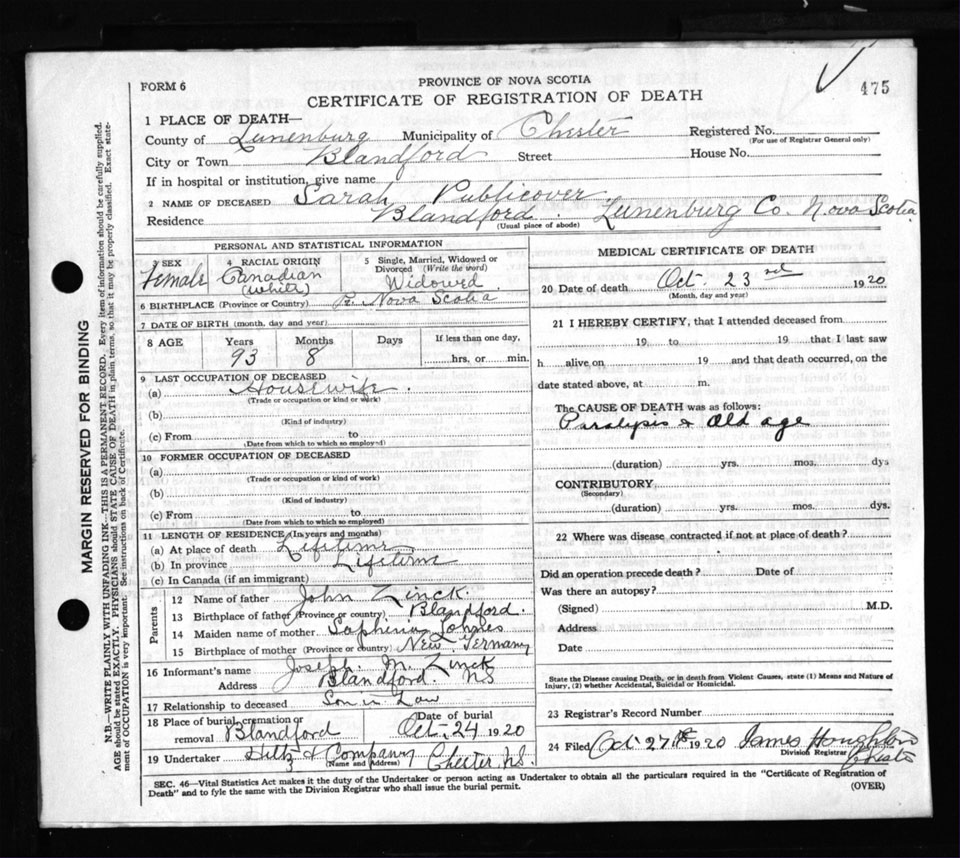 475
FORM 6
PROVINCE OF NOVA SCOTIA
CERTIFICATE OF REGISTRATION OF DEATH
1 PLACE OF DEATH—
County of Lunenburg Municipality of Chester Registered No.
(For use of Registrar General only)
City or Town Blandford Street House No.
If in hospital or institution, give name
2 NAME OF DECEASED Sarah Publicover
Residence Blandford. Lunenburg Co. Nova Scotia
(Usual place of abode)
PERSONAL AND STATISTICAL INFORMATION
3 SEX Female
4 RACIAL ORIGIN Canadian (White)
5 Single, Married, Widowed or Divorced (Write the word) Widowed
6 BIRTHPLACE (Province or Country) Nova Scotia
7 DATE OF BIRTH (month, day and year)
8 AGE Years Months Days If less than one day,
93 8 hrs. or min.
9 LAST OCCUPATION OF DECEASED
(a) Housewife.
(Trade or occupation or kind of work)
(b)
(Kind of industry)
(c) From to
(Date from which to which so employed)
10 FORMER OCCUPATION OF DECEASED
(a)
(Trade or occupation or kind of work)
(b)
(Kind of industry)
(c) From to
(Date from which to which so employed)
11 LENGTH OF RESIDENCE (In years and months)
(a) At place of death Lifetime
(b) In province Lifetime
(c) In Canada (if an immigrant)
Parents
12 Name of father John Zinck.
13 Birthplace of father (Province or country) Blandford.
14 Maiden name of mother Sophenia Lohnes
15 Birthplace of mother (Province or country) New Germany
16 Informant's name Joseph. M. Zinck
Address Blandford. NS
17 Relationship to deceased Son in Law
18 Place of burial, cremation or removal Blandford Date of burial Oct. 24 1920
19 Undertaker Hiltz & Company Chester, N.S.
(Name and Address)
MEDICAL CERTIFICATE OF DEATH
20 Date of death Oct. 23rd 1920
(Month, day and year)
21 I HEREBY CERTIFY, that I attended deceased from
19 to 19 that I last saw
h alive on 19 and that death occurred, on the
date stated above, at m.
The CAUSE OF DEATH was as follows:
Paralysis & Old age
(duration) yrs. mos. dys
CONTRIBUTORY
(Secondary)
(duration) yrs. mos. dys
22 Where was disease contracted if not at place of death?
Did an operation precede death? Date of
Was there an autopsy?
(Signed) M.D.
Address
Date
State the Disease causing Death, or in death from Violent Causes, state (1) Means and Nature of
Injury, (2) whether Accidental, Suicidal or Homicidal.
23 Registrar's Record Number
24 Filed Oct 27th 1920 James Houghton
Division Registrar
Chester
SEC. 46—Vital Statistics Act makes it the duty of the Undertaker or person acting as Undertaker to obtain all the particulars required in the "Certificate of Registration of
Death" and to fyle the same with the Division Registrar who shall issue the burial permit.
(OVER)
MARGIN RESERVED FOR BINDING
N.B.—WRITE PLAINLY WITH UNFADING INK—THIS IS A PERMANENT RECORD. Every item of information should be carefully supplied.
AGE should be stated EXACTLY. PHYSICIANS should STATE CAUSE OF DEATH in plain terms, so that it may be properly classified. Exact statement of OCCUPATION is very important. See instructions on back of Certificate.